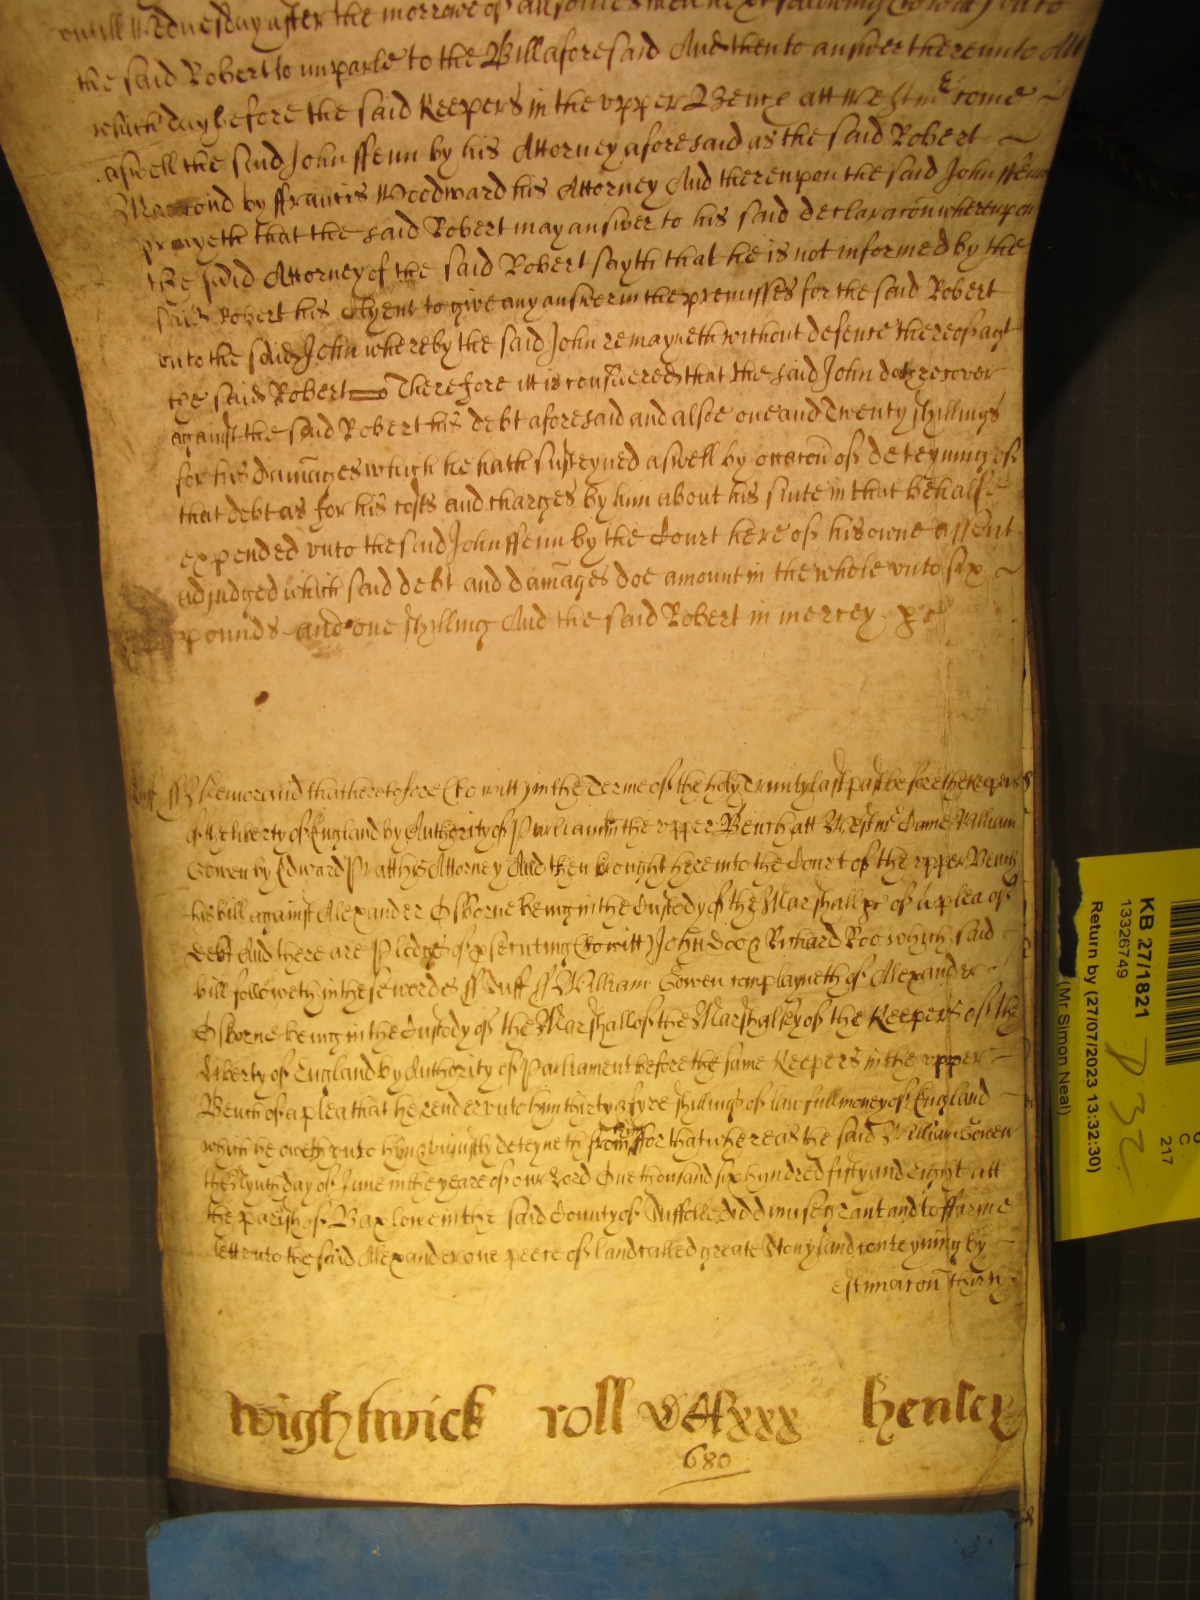 untill Wednesday after the morrowe of all soules then next following (to witt) unto
the said Robert to imparle to the Bill aforesaid And then to answer thereunto Att
which day before the said Keepers in the upper Bench att Westmr come
aswell the said John ffenn by his Attorney aforesaid as the said Robert
by ffrancis Woodward his Attorney And thereupon the said John ffenn
prayeth that the said Robert may answer to his said declaracon whereupon
the said Attorney of the said Robert sayth that he is not informed by the
said Robert his Clyent to give any answer in the premisses for the said Robert
unto the said John whereby the said John remayneth without defence thereof agt
the said Robert Therefore itt is considered that the said John doth recover
against the said Robert his debt aforesaid and alsoe one and Twenty shillings
for his damages which he hath susteyned aswell by occacon of deteyning of
that debt as for his costs and charges by him about his suite in that behalf
expended unto the said John ffenn by the Court here of his owne assent
adjudged which said debt and damages doe amount in the whole unto six
pounds and one shilling And the said Robert in mercy &c
Suff ss Memorand that heretofore (to witt) in the Terme of the holy Trinity last past before the Keepers
of the liberty of England by Authority of Parliamt in the upper Bench att Westmr Came William
Gowen by Edward Pratt his Attorney And then brought here into the Court of the upper Bench
his bill against Alexander Osborne being in the Custody of the Marshall &c of a plea of
debt And there are Pledges of psecuting (to witt) John Doo & Richard Roo which said
bill followeth in these wordes ss Suff ss William Gowen complayneth of Alexander
Osborne being in the Custody of the Marshall of the Marshalsey of the Keepers of the
Liberty of England by Authority of Parliament before the same Keepers in the upper
Bench of a plea that he render unto him thirty & fyve shillings of lawfull money of England
which he oweth unto him & uniustly deteyneth from him for that whereas the said William Gowen
the Nynth day of June in the yeare of our Lord One thousand six hundred fifty and eight att
the parish of Baxlowe in the said County of Suffolk did dimise grant and to ffarme
lett unto the said Alexander one peece of land called greate Stonyland conteyning by
estimacon thirty
Wightwick roll vCtxxx henley
680
KB 27/1821
13326749
Return by (27/07/2023 13:32:30)
(Mr Simon Neal)
C
217